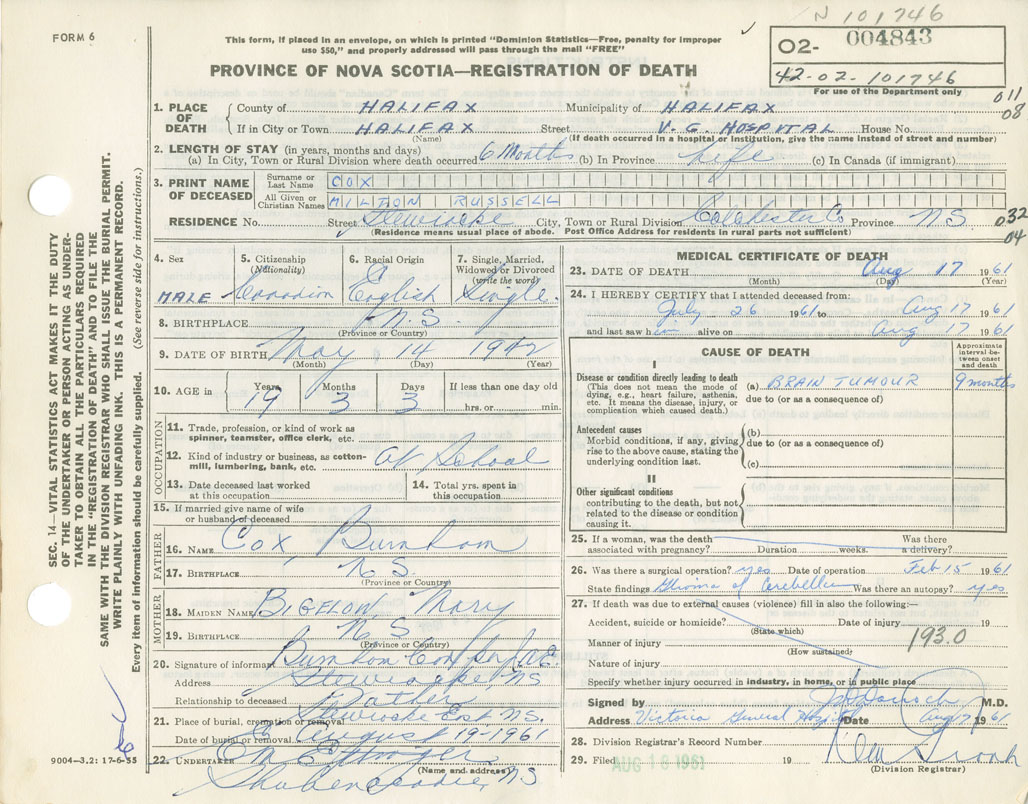 N 101746
FORM 6
This form, if placed in an envelope, on which is printed "Dominion Statistics—Free, penalty for improper
use $50," and properly addressed will pass through the mail "FREE"
PROVINCE OF NOVA SCOTIA—REGISTRATION OF DEATH
02- 004843
42-02-101746
For use of the Department only
011
08
1. PLACE OF DEATH County of HALIFAX Municipality of HALIFAX
If in City or Town HALIFAX Street V. G. HOSPITAL House No.
(Name) (If death occurred in a hospital or institution, give the name instead of street and number)
2. LENGTH OF STAY (in years, months and days)
(a) In City, Town or Rural Division where death occurred 6 Months (b) In Province Life (c) In Canada (if immigrant)
3. PRINT NAME OF DECEASED Surname or Last Name COX
All Given or Christian Names MILTON RUSSELL
RESIDENCE No. Street Stewiacke City, Town or Rural Division Colchester Co Province N S
(Residence means usual place of abode. Post Office Address for residents in rural parts not sufficient)
032
04
4. Sex MALE
5. Citizenship (Nationality) Canadian
6. Racial Origin English
7. Single, Married, Widowed or Divorced (write the word) Single
8. BIRTHPLACE N. S.
(Province or Country)
9. DATE OF BIRTH May 14 1942
(Month) (Day) (Year)
10. AGE in Years 19 Months 3 Days 3 If less than one day old
hrs. or min.
OCCUPATION
11. Trade, profession, or kind of work as
spinner, teamster, office clerk, etc.
12. Kind of industry or business, as cotton-
mill, lumbering, bank, etc. At School
13. Date deceased last worked
at this occupation
14. Total yrs. spent in
this occupation
15. If married give name of wife
or husband of deceased
FATHER
16. NAME Cox, Burnham
17. BIRTHPLACE N S.
(Province or Country)
MOTHER
18. MAIDEN NAME BIGELOW, Mary
19. BIRTHPLACE N. S
(Province or Country)
20. Signature of informant Burnham Cox per
Address Stewiacke, NS
Relationship to deceased Father
21. Place of burial, cremation or removal Stewiacke East NS.
Date of burial or removal August 19-1961
22. UNDERTAKER
(Name and address) Shubenacadie, NS
MEDICAL CERTIFICATE OF DEATH
23. DATE OF DEATH Aug 17 1961
(Month) (Day) (Year)
24. I HEREBY CERTIFY that I attended deceased from:
July 26 1961 to Aug 17 1961
and last saw him alive on Aug 17 1961
CAUSE OF DEATH
Approximate interval between onset and death
I
Disease or condition directly leading to death
(This does not mean the mode of
dying, e.g., heart failure, asthenia,
etc. It means the disease, injury, or
complication which caused death.)
(a) BRAIN TUMOUR 9 months
due to (or as a consequence of)
Antecedent causes
Morbid conditions, if any, giving
rise to the above cause, stating the
underlying condition last.
(b)
due to (or as a consequence of)
(c)
II
Other significant conditions
contributing to the death, but not
related to the disease or condition
causing it.
25. If a woman, was the death Was there
associated with pregnancy? Duration weeks. a delivery?
26. Was there a surgical operation? yes Date of operation Feb 15 1961
State findings Glioma of Cerebellum Was there an autopsy? yes
27. If death was due to external causes (violence) fill in also the following:—
Accident, suicide or homicide? Date of injury 19
(State which)
193.0
Manner of injury
(How sustained)
Nature of injury
Specify whether injury occurred in industry, in home, or in public place
Signed by M.D.
Address Victoria General Hospital Date Aug 17 1961
28. Division Registrar's Record Number
29. Filed AUG 18 1961 19
(Division Registrar)
SEC. 14—VITAL STATISTICS ACT MAKES IT THE DUTY
OF THE UNDERTAKER OR PERSON ACTING AS UNDER-
TAKER TO OBTAIN ALL THE PARTICULARS REQUIRED
IN THE "REGISTRATION OF DEATH" AND TO FILE THE
SAME WITH THE DIVISION REGISTRAR WHO SHALL ISSUE THE BURIAL PERMIT.
WRITE PLAINLY WITH UNFADING INK. THIS IS A PERMANENT RECORD.
Every item of information should be carefully supplied. (See reverse side for instructions.)
9004—3.2: 17-6-55